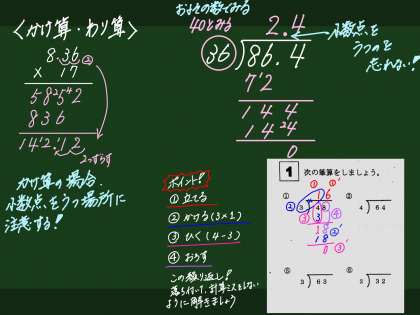 〈かけ算・わり算〉
8.36②
× 17
58²5⁴2
836
14'2,'12
2つずらす
かけ算の場合、
小数点をうつ場所に
注意する!
およその数でみる
40とみる
2.4
36)86.4
7'2
144
14²4
0
小数点を
うつのを
忘れない!
ポイント!!
①立てる
②かける(3×1)
③ひく(4-3)
④おろす
この繰り返し!
落ち付いて、計算ミスをしない
ように解きましょう
1 次の筆算をしましょう。
① ①'
16
① ② 3)48
③ 3 ④
18 ②'
18
0 ③'
② 4)64
⑤ 3)63
⑥ 3)32